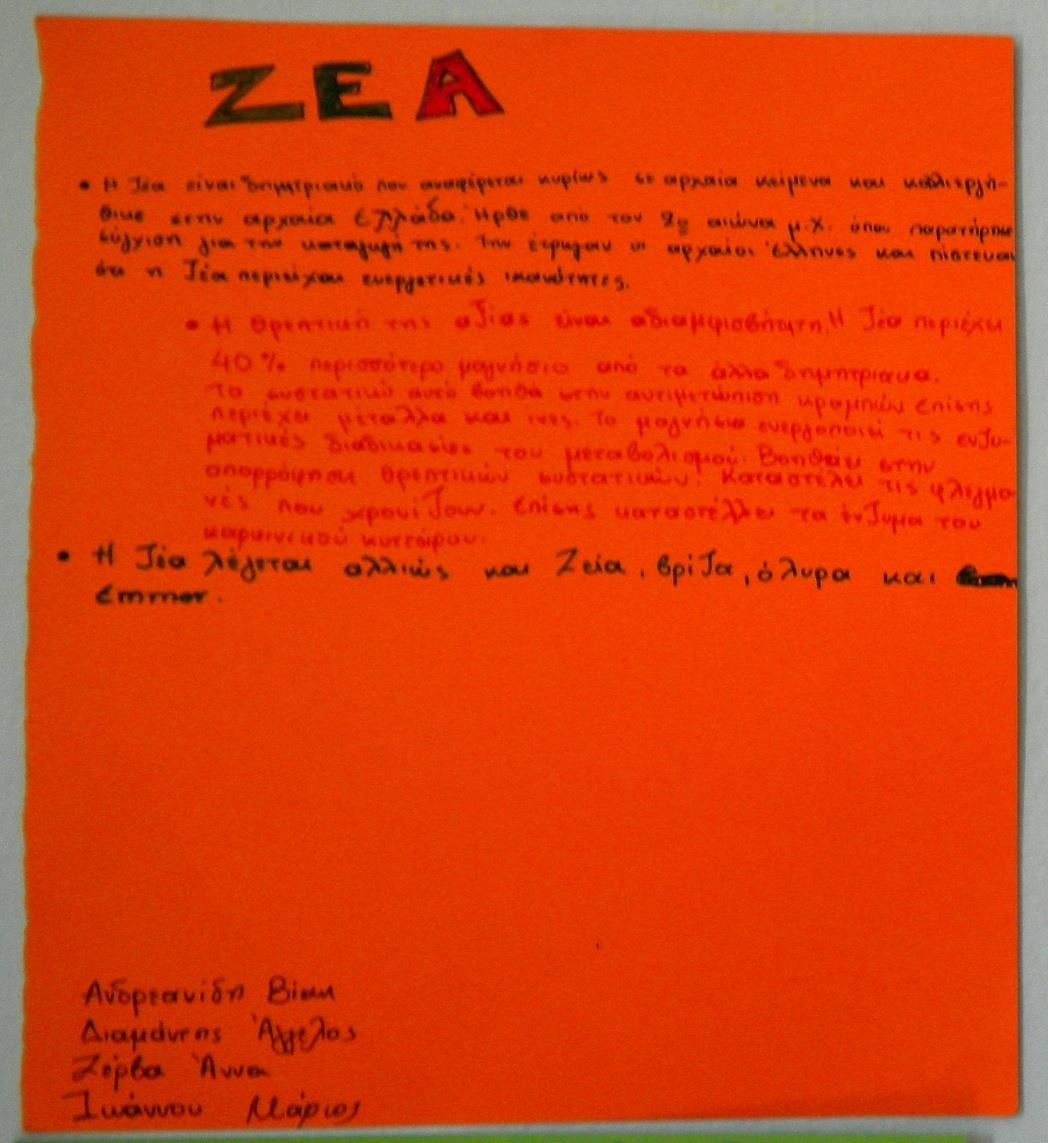 ΖΕΑ
• Η Ζέα είναι δημητριακό που αναφέρεται κυρίως σε αρχαία κείμενα και καλιεργή-
θικε στην αρχαία Ελλάδα. Ήρθε από τον 2ο αιώνα μ.Χ. όπου παρατήρησε
σύγχιση για την καταγωγή της. Την έτρωγαν οι αρχαίοι Έλληνες και πίστευαν
ότι η Ζέα περιείχαι ευεργετικές ικανότητες.
• Η θρεπτική της αξίας είναι αδιαμφισβήτητη. Η Ζέα περιέχει
40% περισσότερο μαγνήσιο από τα άλλα δημητριακα.
Το συστατικό αυτό βοηθά στην αντιμετώπιση κραμπών επίσης
περιέχει μέταλλα και ίνες. Το μαγνήσιο ενεργοποιεί τις ενζυ-
ματικές διαδικασίες του μεταβολισμού. Βοηθάει στην
απορρόφηση θρεπτικών συστατικών. Καταστέλει τις φλεγμο-
νές που χρονίζουν. Επίσης καταστέλλει τα ένζυμα του
καρκινικού κυττάρου.
• Η Ζέα λέγεται αλλιώς και Ζεία, βρίζα, όλυρα και
Emmer.
Ανδρεανίδη Βίκη
Διαμάντης Άγγελος
Ζέρβα Άννα
Ιωάννου Μάριος